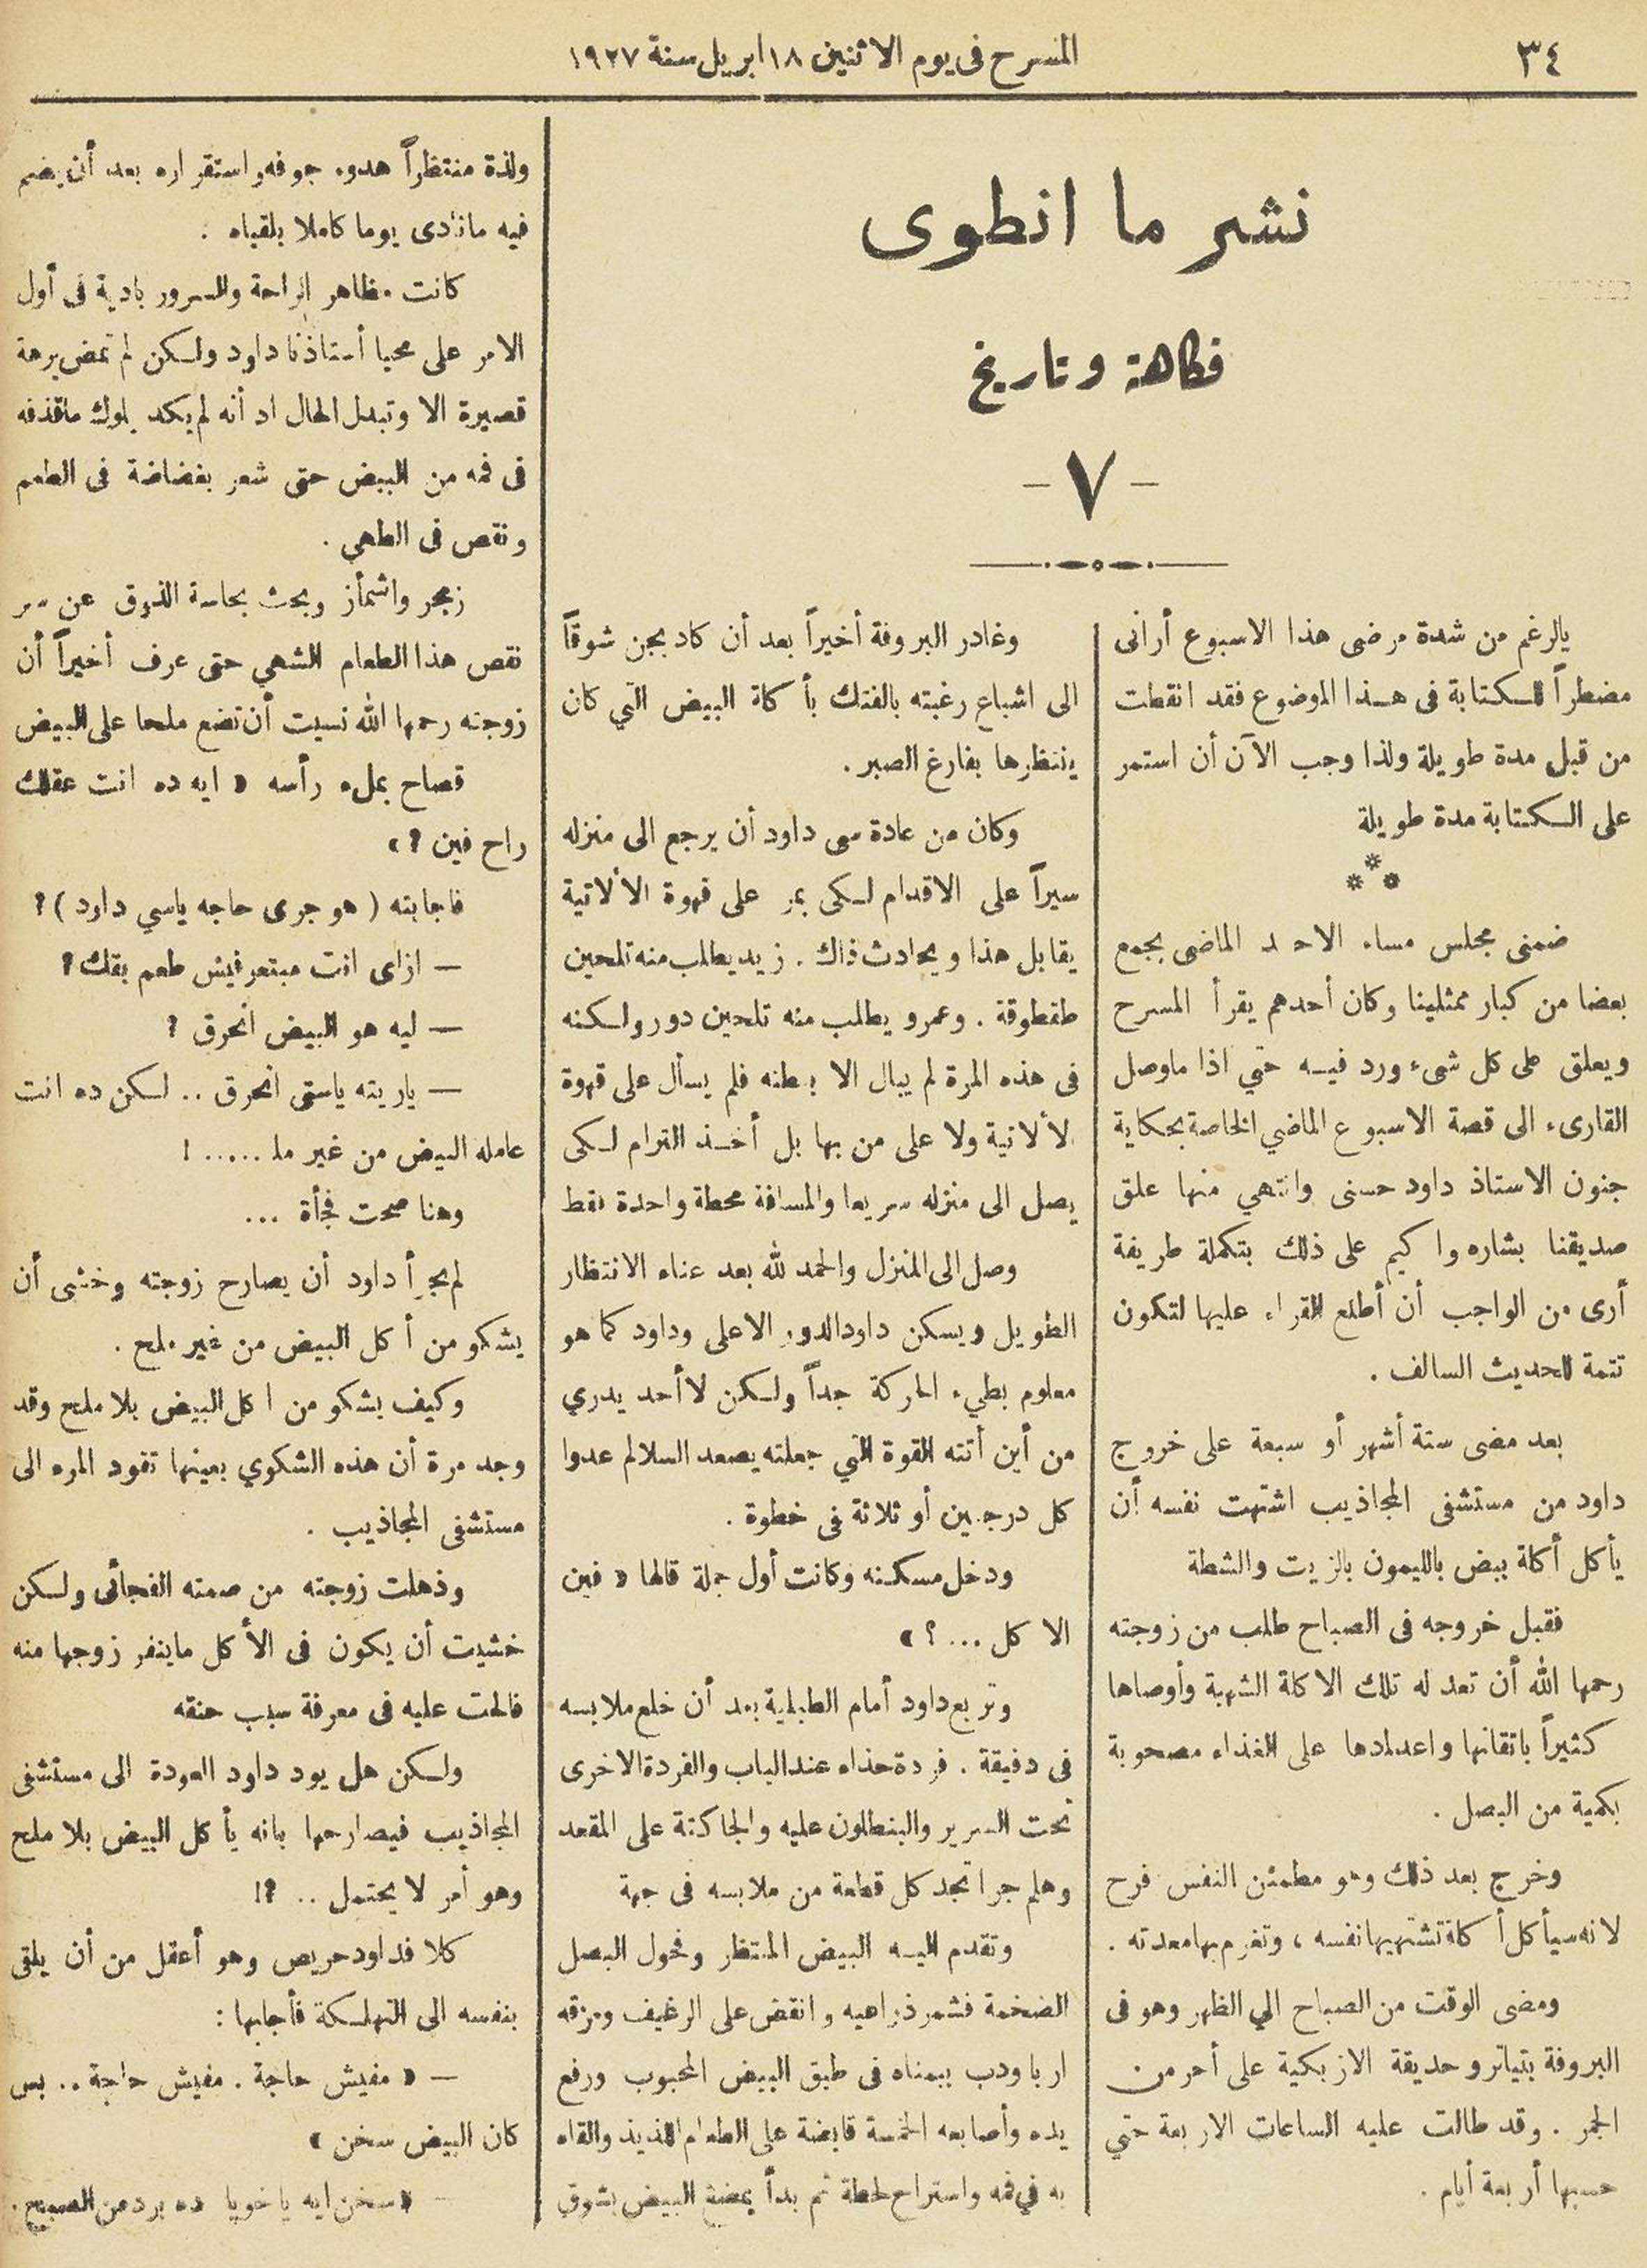 ٣٤
المسرح فى يوم الاثنين ١٨ ابريل سنة ١٩٢٧
نشر ما انطوى
فكاهة وتاريخ
- ٧ -
بالرغم من شدة مرضى هذا الاسبوع أرانى
مضطراً للكتابة فى هذا الموضوع فقد انقطت
من قبل مدة طويلة ولذا وجب الآن أن استمر
على الكتابة مدة طويلة
***
ضمنى مجلس مساء الاحد الماضى بجمع
بعضا من كبار ممثلينا وكان أحدهم يقرأ المسرح
ويعلق على كل شىء ورد فيه حتي اذا ماوصل
القارىء الى قصة الاسبوع الماضي الخاصة بحكاية
جنون الاستاذ داود حسنى وانتهي منها علق
صديقنا بشاره واكيم على ذلك بتكملة طريفة
أرى من الواجب أن أطلع القراء عليها لتكون
تتمة للحديث السالف .
بعد مضى ستة أشهر أو سبعة على خروج
داود من مستشفى المجاذيب اشتهت نفسه أن
يأكل أكلة بيض بالليمون بالزيت والشطة
فقبل خروجه فى الصباح طلب من زوجته
رحمها الله أن تعد له تلك الاكلة الشهية وأوصاها
كثيراً باتقانها واعدادها على الغذاء مصحوبة
بكمية من البصل .
وخرج بعد ذلك وهو مطمئن النفس فرح
لانه سيأكل أكلة تشتهيها نفسه ، وتغرم بها معدته .
ومضى الوقت من الصباح الي الظهر وهو فى
البروفة بتياترو حديقة الازبكية على أحر من
الجمر . وقد طالت عليه الساعات الاربعة حتي
حسبها أربعة أيام .
وغادر البروفة أخيراً بعد أن كاد يجن شوقاً
الى اشباع رغبته بالفتك بأكلة البيض التي كان
ينتظرها بفارغ الصبر .
وكان من عادة سى داود أن يرجع الى منزله
سيراً على الاقدام لكى يمر على قهوة الألاتية
يقابل هذا ويحادث ذاك . زيد يطلب منه تلحين
طقطوقة . وعمرو يطلب منه تلحين دور ولكنه
فى هذه المرة لم يبال الا ببطنه فلم يسأل على قهوة
الألاتية ولا على من بها بل أخذ الترام لكى
يصل الى منزله سريعا والمسافة محطة واحدة فقط
وصل الى المنزل والحمد لله بعد عناء الانتظار
الطويل ويسكن داود الدور الاعلى وداود كما هو
معلوم بطيء الحركة جداً ولكن لا أحد يدري
من أين أتته القوة التي جعلته يصعد السلالم عدوا
كل درجتين أو ثلاثة فى خطوة .
ودخل مسكنه وكانت أول جملة قالها « فين
الاكل ... ؟ »
وتربع داود أمام الطبلية بعد أن خلع ملابسه
فى دقيقة . فردة حذاء عند الباب والفردة الاخرى
تحت السرير والبنطلون عليه والجاكتة على المقعد
وهلم جرا تجد كل قطعة من ملابسه فى جهة
وتقدم اليه البيض المنتظر وفحول البصل
الضخمة فشمر ذراعيه وانقض على الرغيف ومزقه
اربا ودب بيمناه فى طبق البيض المحبوب ورفع
يده وأصابعه الخمسة قابضة على الطعام اللذيذ والقاه
به في فمه واستراح لحظة ثم بدأ يمضغ البيض بشوق
ولذة منتظراً هدوء جوفه واستقراره بعد أن يضم
فيه مانادى يوما كاملا بلقياه .
كانت مظاهر الراحة والسرور بادية فى أول
الامر على محيا أستاذنا داود ولكن لم تمض برهة
قصيرة الا وتبدل الحال اد أنه لم يكد يلوك ماقذفه
فى فمه من البيض حتى شعر بغضاضة فى الطعم
ونقص فى الطهي .
زمجر واشمأز وبحث بحاسة الذوق عن سر
نقص هذا الطعام الشهي حتى عرف أخيراً أن
زوجته رحمها الله نسيت أن تضع ملحا على البيض
فصاح بملء رأسه « ايه ده انت عقلك
راح فين ؟ »
فاجابته ( هو جرى حاجه ياسي داود ) ؟
— ازاى انت مبتعرفيش طعم بقك ؟
— ليه هو البيض انحرق ؟
— ياريته ياستى انحرق .. لكن ده انت
عامله البيض من غير ملـ ..... !
وهنا صمت فجأة ...
لم يجرأ داود أن يصارح زوجته وخشى أن
يشكو من أكل البيض من غير ملح .
وكيف يشكو من اكل البيض بلا ملح وقد
وجد مرة أن هذه الشكوي بعينها تقود المرء الى
مستشفى المجاذيب .
وذهلت زوجته من صمته الفجائى ولكن
خشيت أن يكون فى الأكل ماينفر زوجها منه
فالحت عليه فى معرفة سبب حنقه
ولكن هل يود داود العودة الى مستشفى
المجاذيب فيصارحها بانه يأكل البيض بلا ملح
وهو أمر لا يحتمل .. ؟!
كلا فداود حريص وهو أعقل من أن يلقى
بنفسه الى التهلكة فأجابها :
— « مفيش حاجة . مفيش حاجة .. بس
كان البيض سخن »
— « سخن ايه ياخويا ده برد من الصبح .